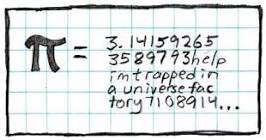 π = 3.14159265
3589793help
imtrapped in
a universe fac
tory7108914...